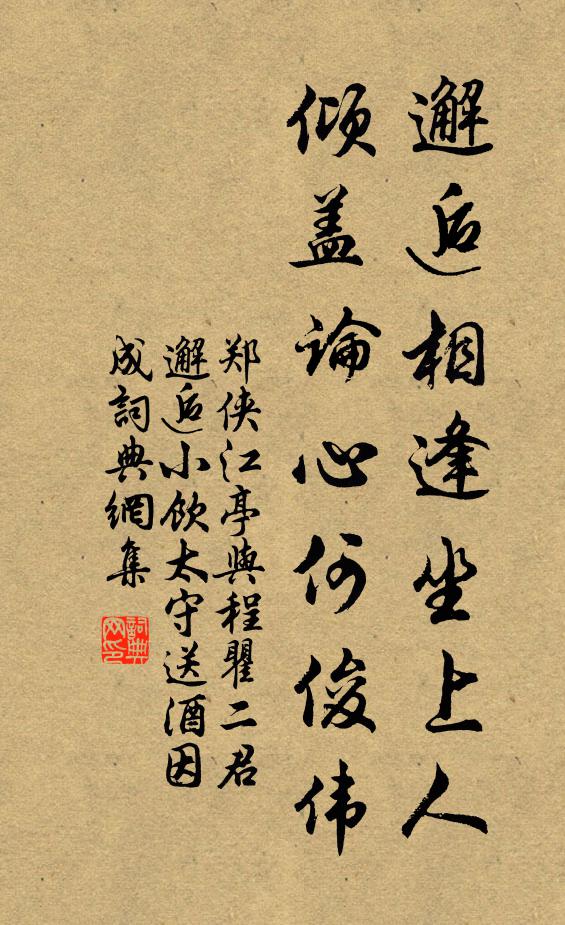 邂逅相逢坐上人
傾盖論心何俊伟
郑侠江亭與程瞿二君
邂逅小飲太守送酒因
成詞典網集
詞典
网印